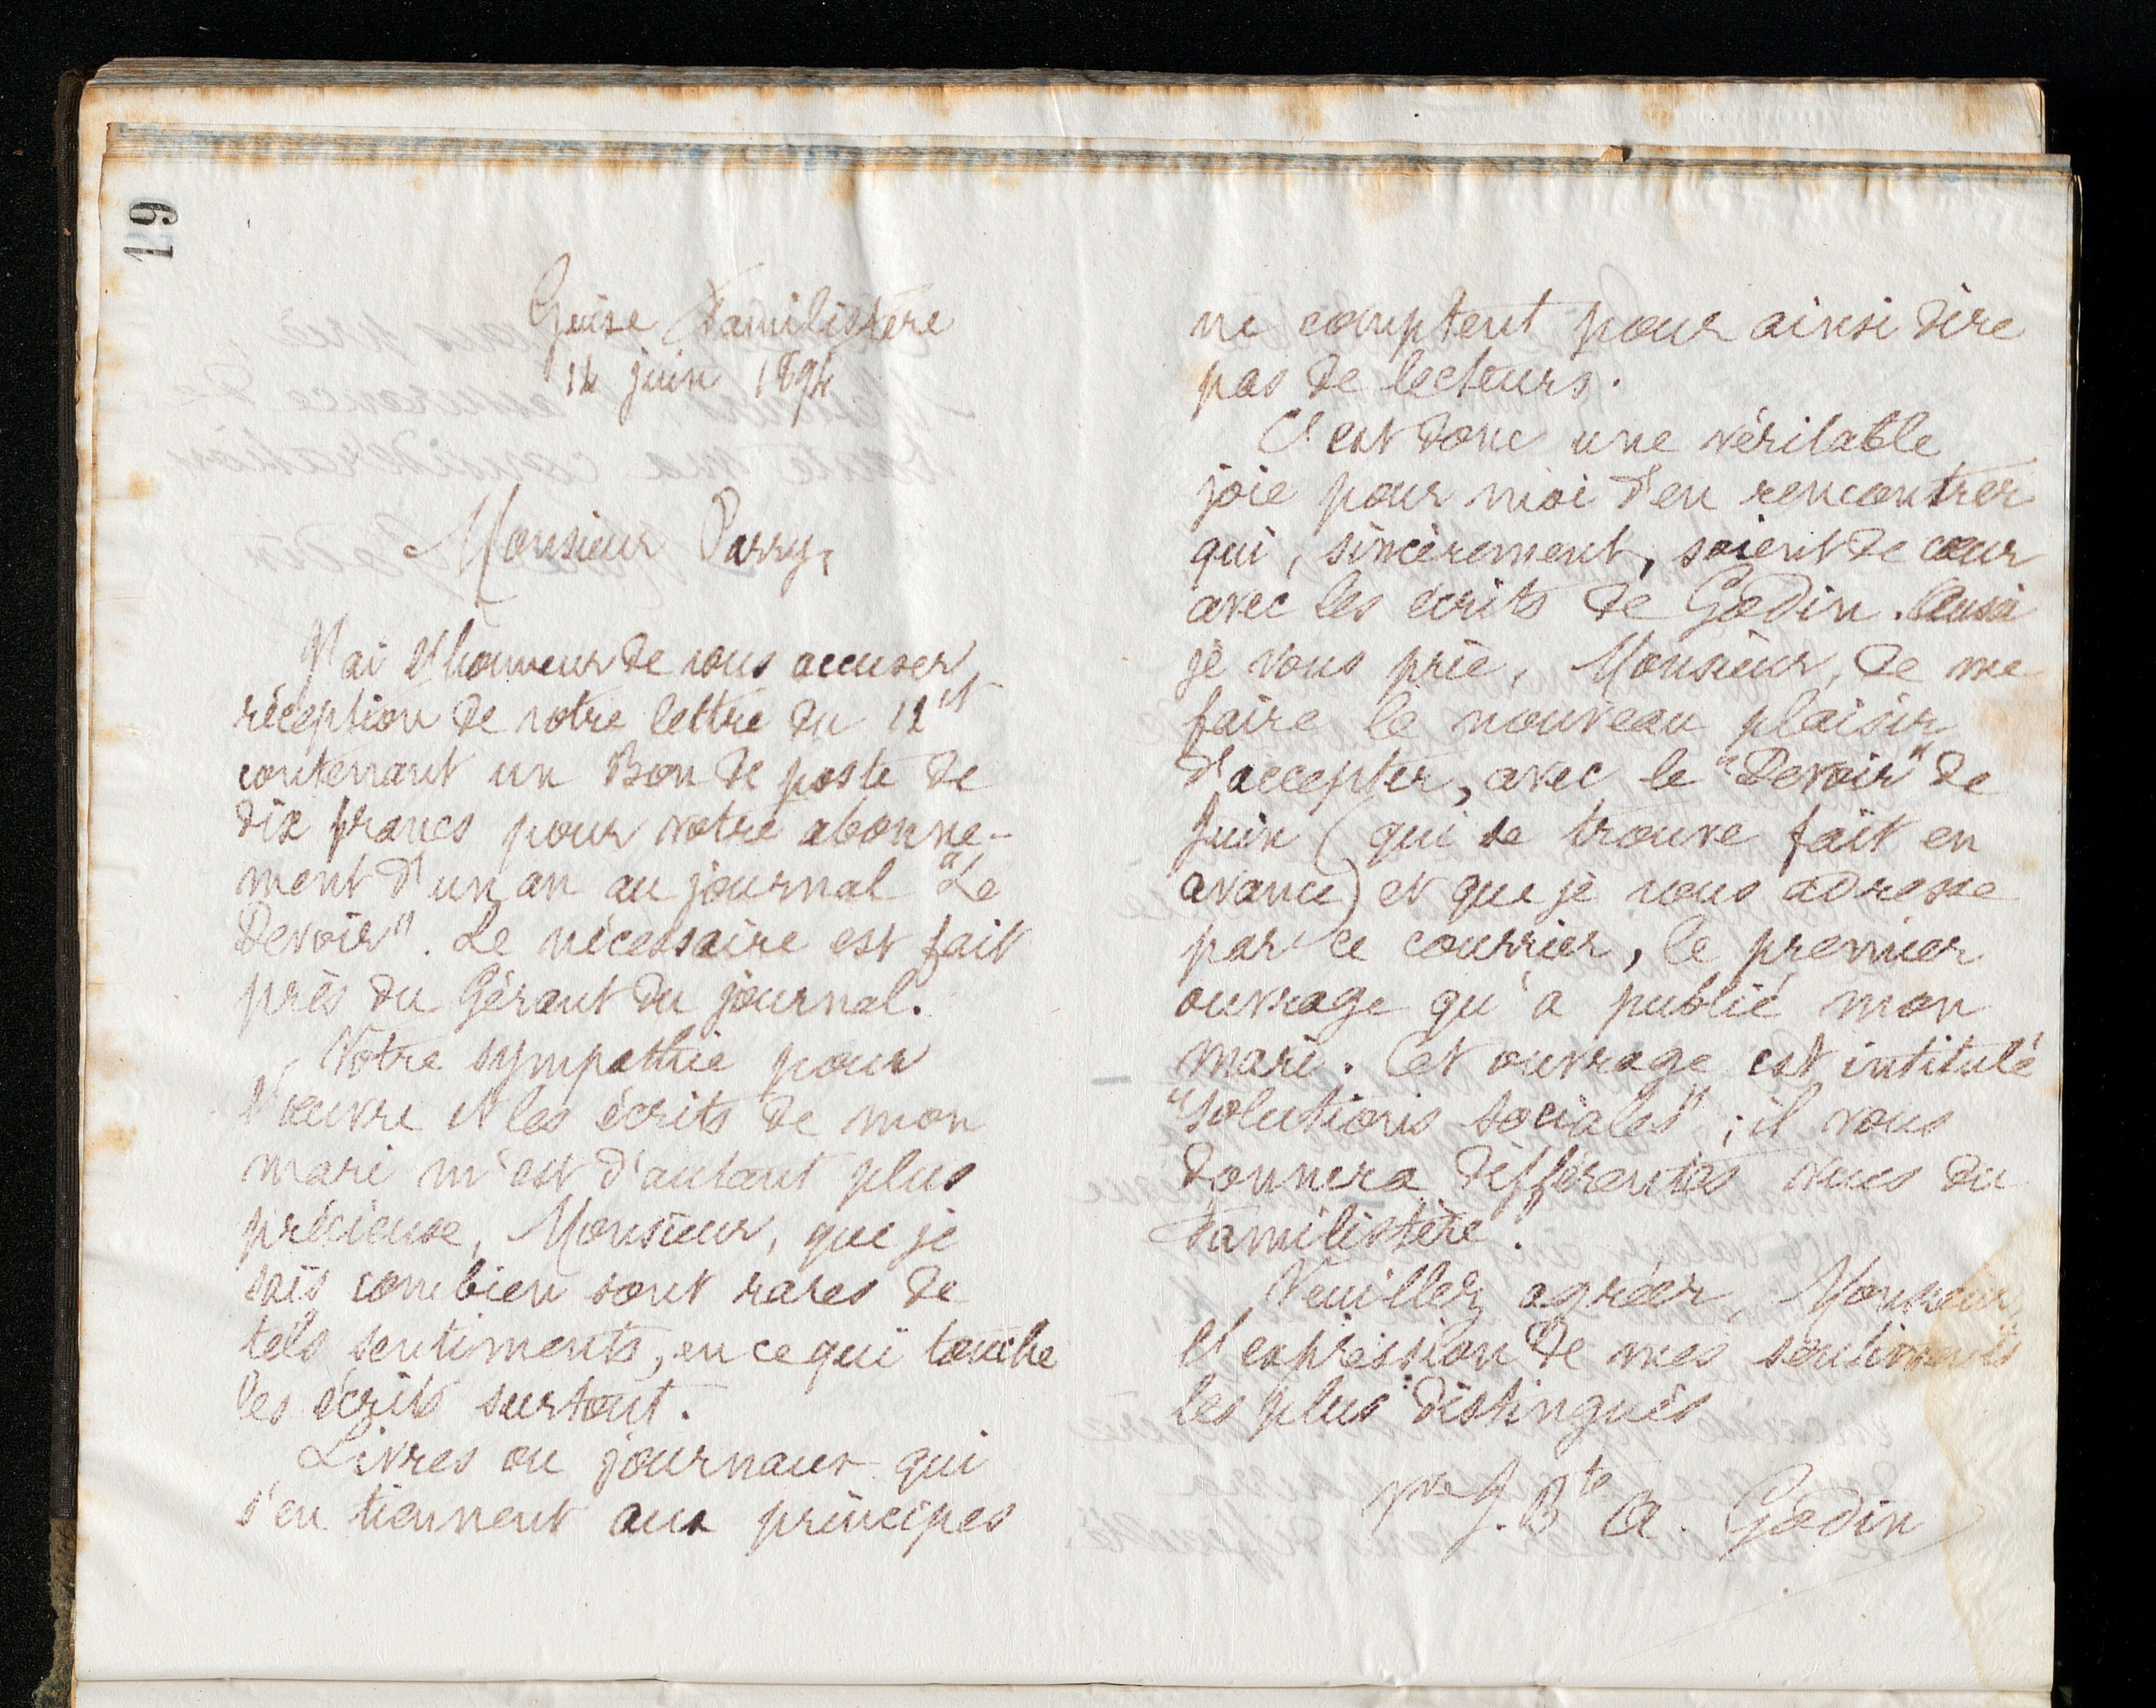 19
Guise Familistère
14 juin 1894
Monsieur Parry,
J'ai l'honneur de vous accuser
réception de votre lettre du 12 ct
contenant un Bon de poste de
dix francs pour votre abonne-
ment d'un an au journal "Le
Devoir". Le nécessaire est fait
près du Gérant du journal.
Votre sympathie pour
l'œuvre et les écrits de mon
mari m'est d'autant plus
précieuse, Monsieur, que je
sais combien sont rares de
tels sentiments, en ce qui touche
les écrits surtout.
Livres ou journaux qui
s'en tiennent aux principes
ne comptent pour ainsi dire
pas de lecteurs.
C'est donc une véritable
joie pour moi d'en rencontrer
qui, sincèrement, soient de cœur
avec les écrits de Godin. Aussi
je vous prie, Monsieur, de me
faire le nouveau plaisir
d'accepter, avec le "Devoir" de
Juin (qui se trouve fait en
avance) et que je vous adresse
par ce courrier, le premier
ouvrage qu'a publié mon
mari. Cet ouvrage est intitulé
"Solutions sociales"; il vous
donnera différentes vues du
Familistère.
Veuillez agréer, Monsieur,
l'expression de mes sentiments
les plus distingués
Vve J. Bte A. Godin